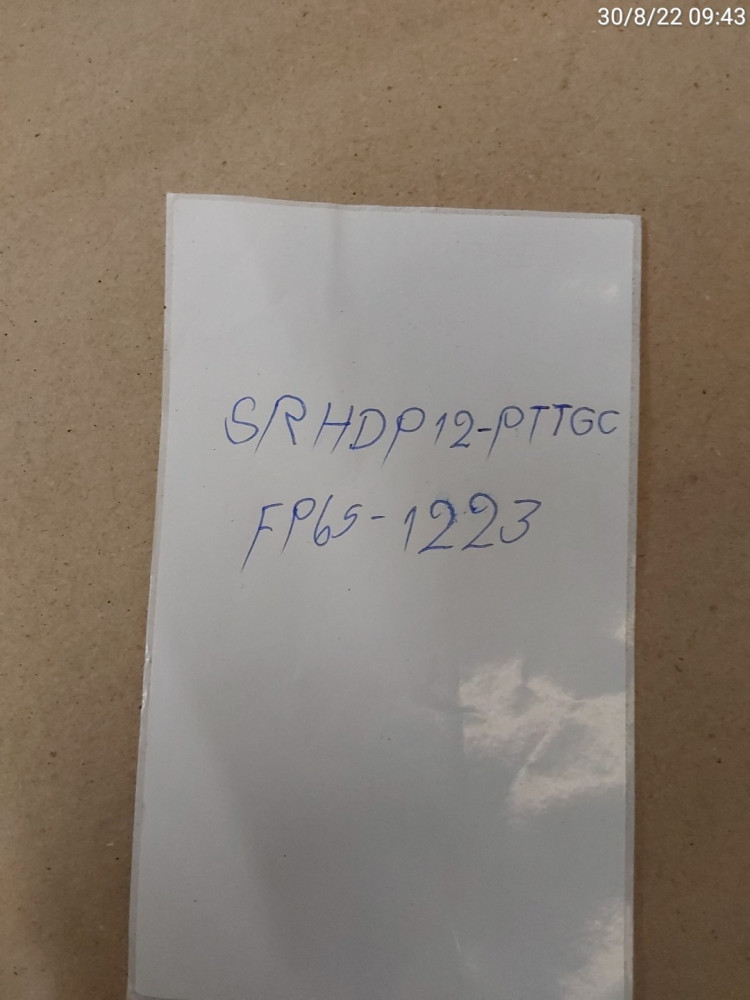 30/8/22 09:43
SRHDP12-PTTGC
FP65-1223